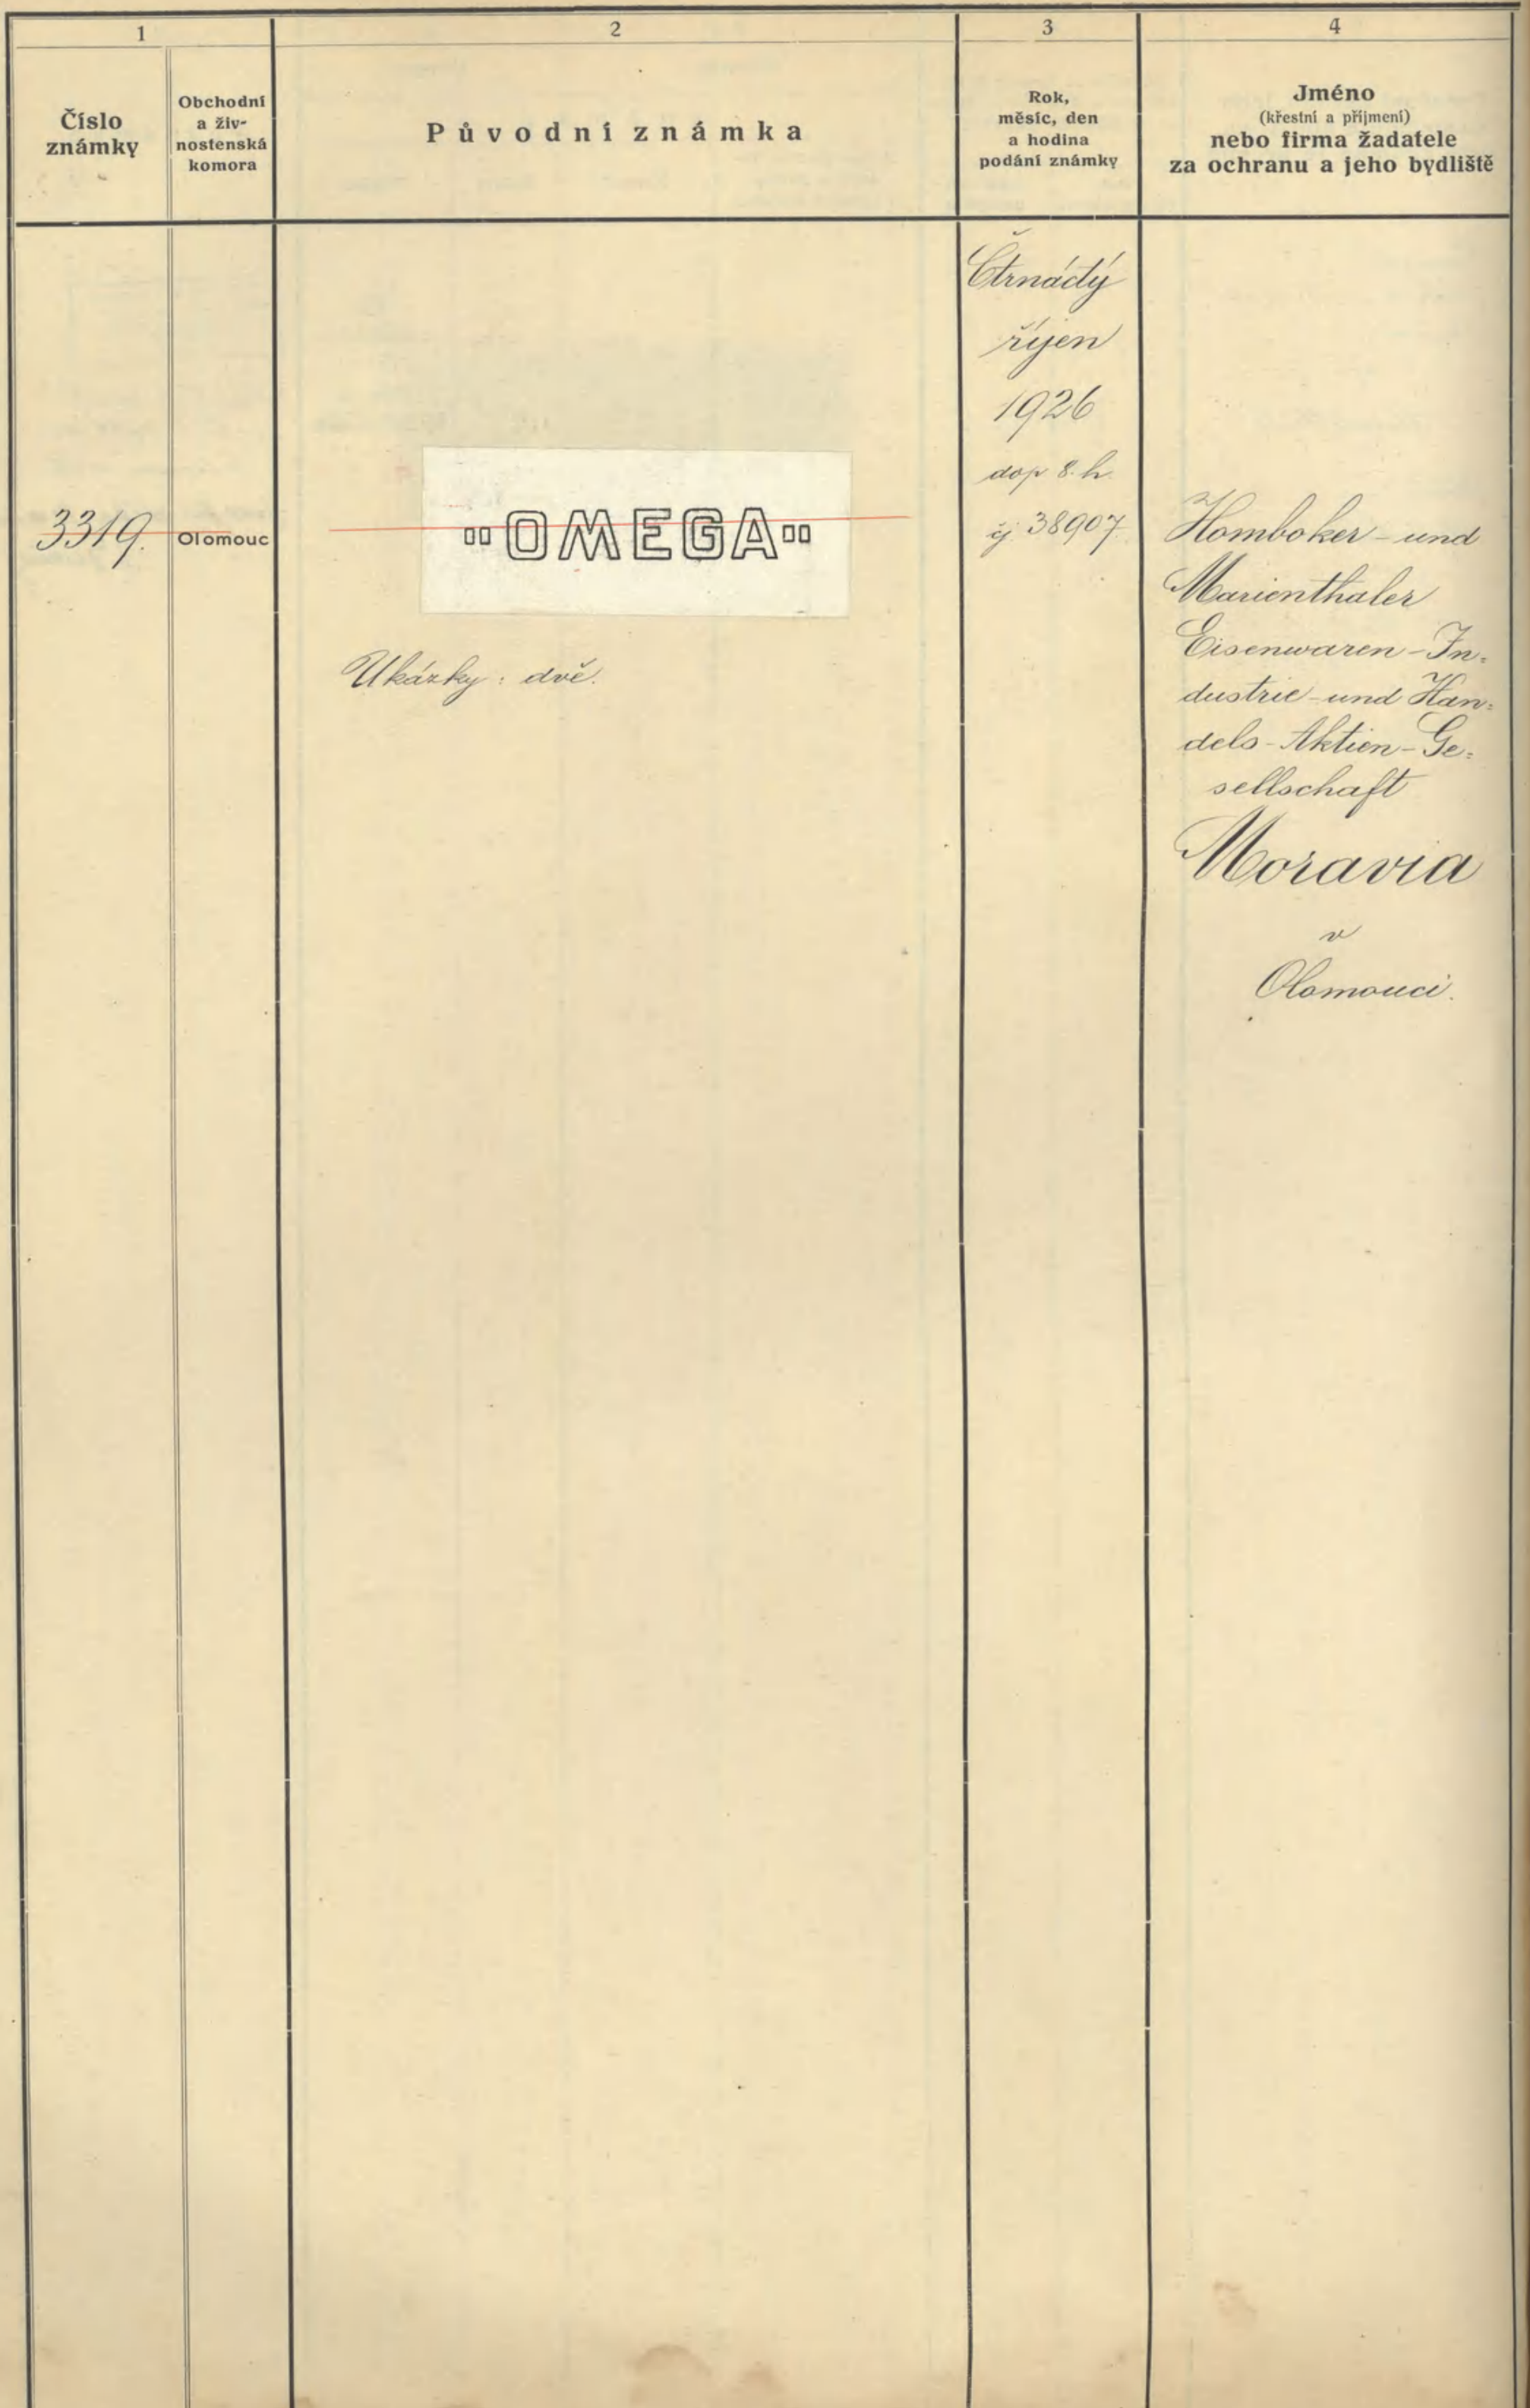 1
2
3
4
Číslo
známky
Obchodní
a živ-
nostenská
komora
Původní známka
Rok,
měsíc, den
a hodina
podání známky
Jméno
(křestní a příjmení)
nebo firma žadatele
za ochranu a jeho bydliště
3319.
Olomouc
"OMEGA"
Ukázky: dvě.
Čtrnáctý
říjen
1926
dop 8. h.
čj. 38907.
Homboker - und
Marienthaler
Eisenwaren - In=
dustrie - und Han=
dels - Aktien - Ge=
sellschaft
Moravia
v
Olomouci.